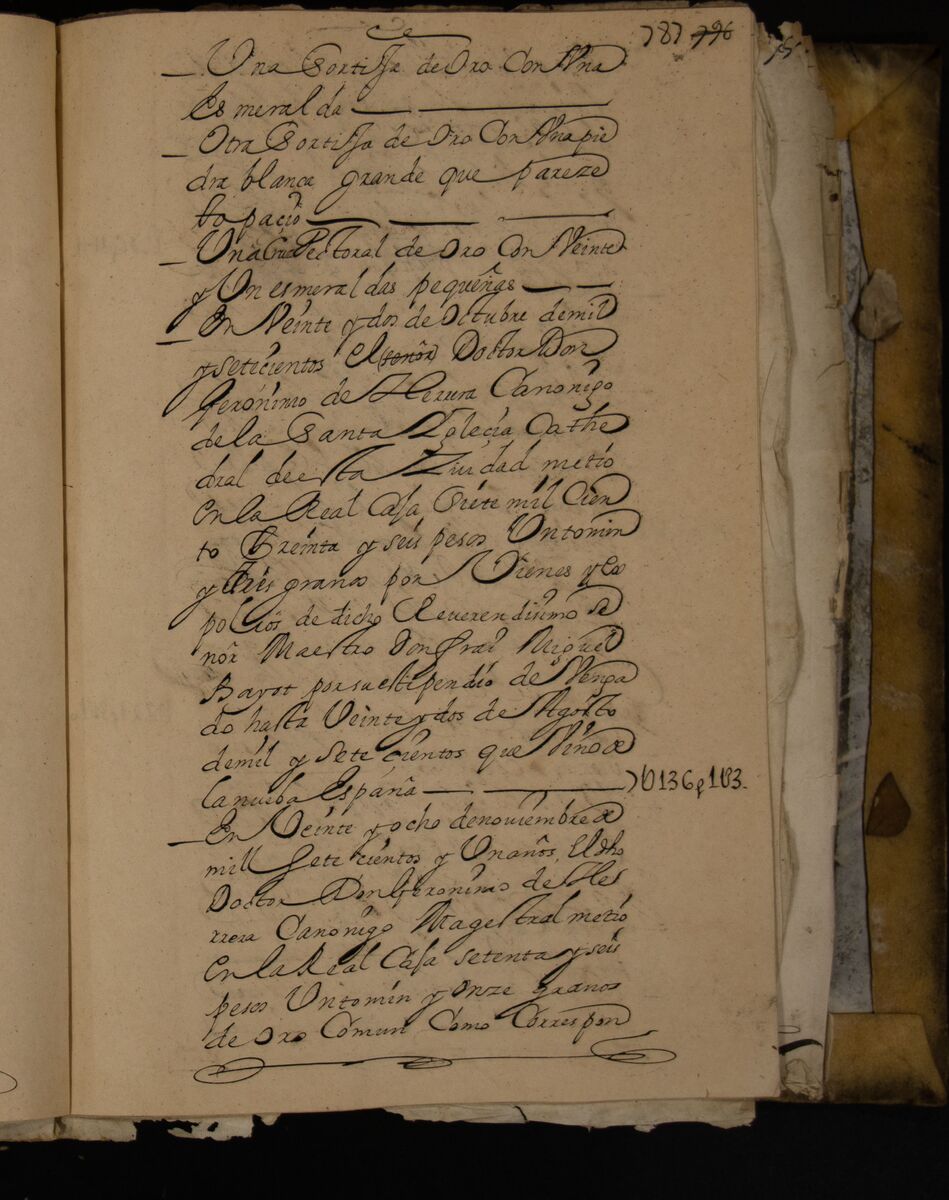 787 796
Una Sortissa de Oro Con Una
Esmeralda
Otra Sortissa de Oro Con Una pie
dra blanca grande que pareze
topaçio
Una Cruz Pectoral de Oro Con Veinte
y Un esmeraldas pequeñas
En Veinte y dos de Octubre demil
y setecientos El señor Doctor Don
Gerónimo de Herrera Canonigo
de la Santa Iglecia Cathe
dral de esta Ziudad metió
en la Real Caja Siete mil Cien
to treinta y seis pesos Un tomin
y tres granos por Vienes y es
polios de dicho Reverendisimo se
ñor Maestro Don fray Miguel
Bayot por su estipendio devenga
do hasta Veinte y dos de Agosto
demil y sete cientos que Vino de
la nueba España 7U136p1t3.
En Veinte y ocho de noviembre de
mill Sete cientos y Un años, El dho
Doctor Don Geronimo de Her
rrera Canonigo Magestral metio
en la Real Caja setenta y seis
pesos Un tomin y onze granos
de Oro Comun Como Correspon